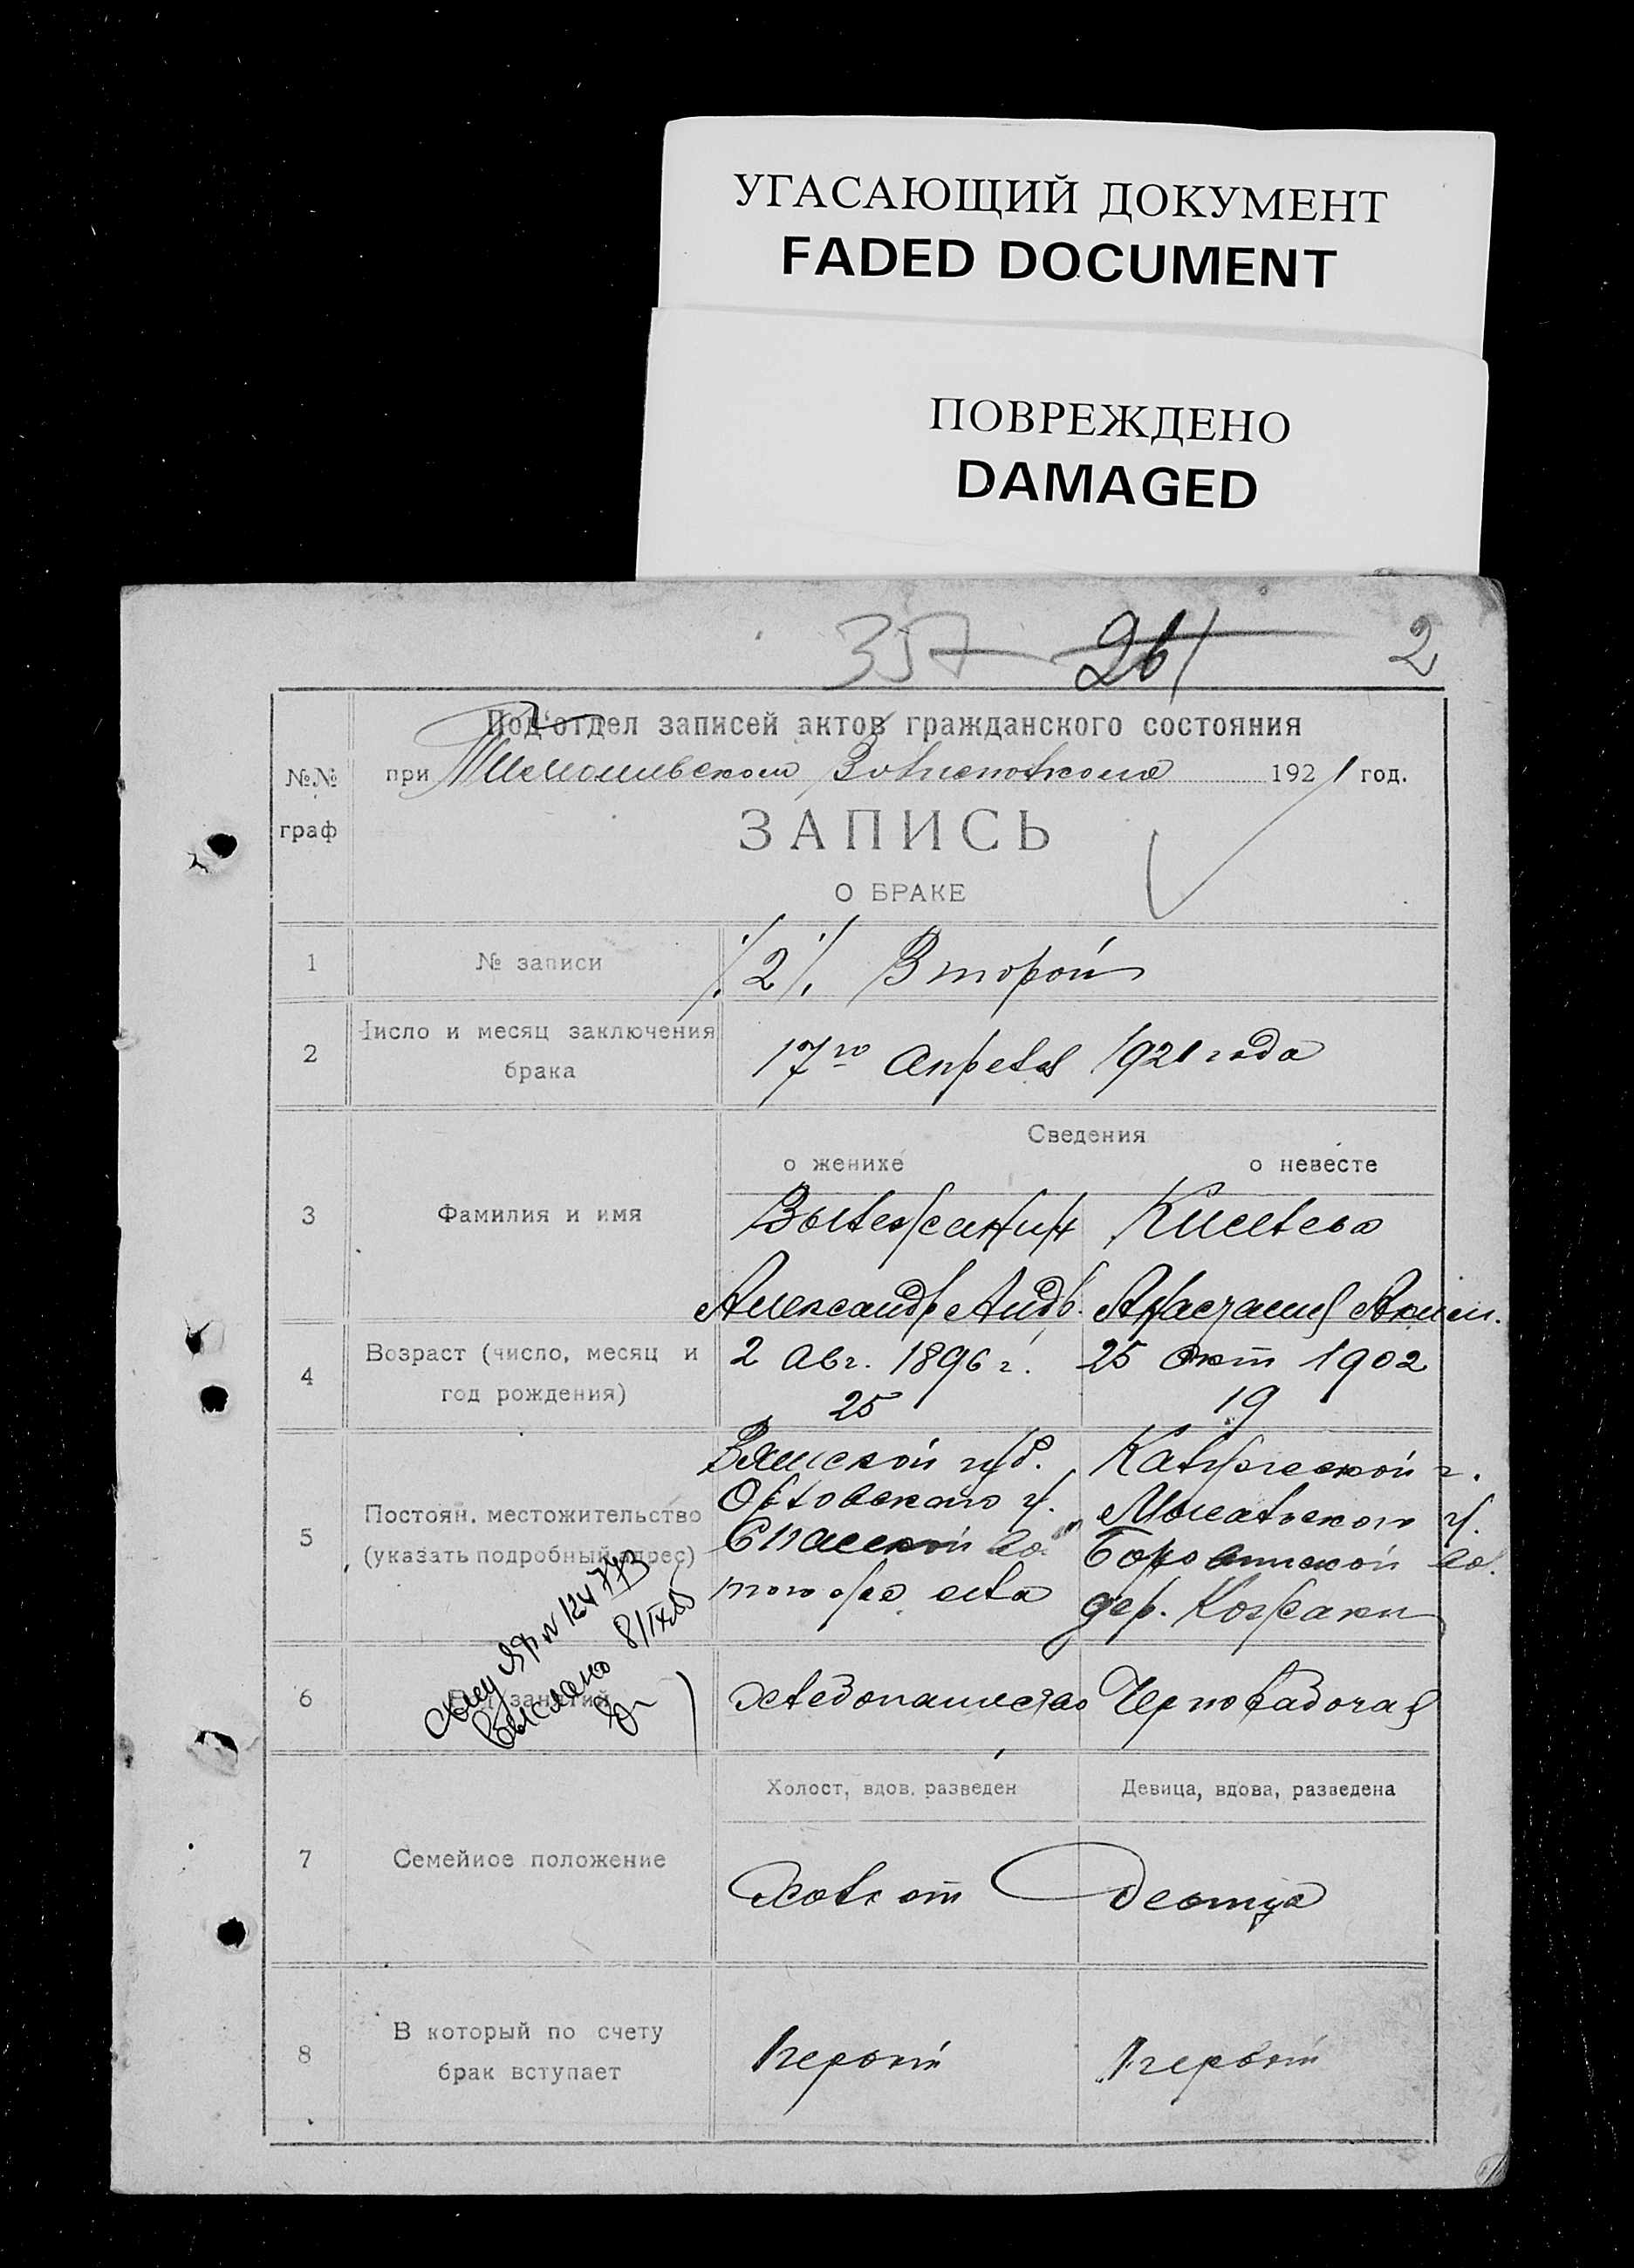 УГАСАЮЩИЙ ДОКУМЕНТ
FADED DOCUMENT
ПОВРЕЖДЕНО
DAMAGED
357 261 2
Под'отдел записей актов гражданского состояния
№№ при 1921 год.
граф
ЗАПИСЬ
О БРАКЕ
1 № записи /2/. Второй
2 Число и месяц заключения
брака
17го Апреля 1921 года
Сведения
о женихе о невесте
3 Фамилия и имя
Вылежанин Киселева
Александр Андр. Анастасия
4 Возраст (число, месяц и
год рождения)
2 Авг. 1896 г. 25 Окт 1902
25 19
5 Постоян. местожительство
(указать подробный адрес)
Вятской губ. Калужеской г.
Орловского у. Мосальского у.
Спасской во. во.
того же села дер.
6 занятий
Хлебопашество Чернорабочая
№ 124773
Выслано
7 Семейное положение
Холост, вдов, разведен Девица, вдова, разведена
Холост Девица
8 В который по счету
брак вступает
Первый Первый